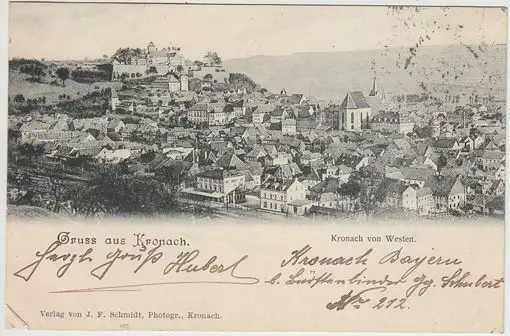 Gruss aus Kronach.
Kronach von Westen.
Herzl. Gruß Hubert
Kronach Bayern
b. Bürstenbinder Gg. Schubert
No 212.
Verlag von J. F. Schmidt, Photogr., Kronach.